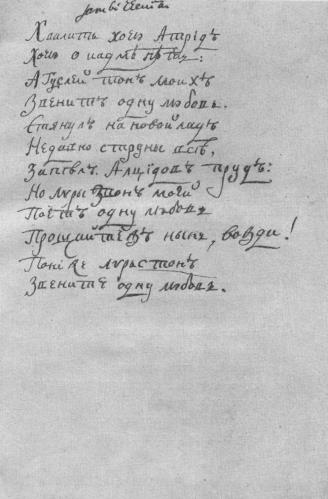 Хвалить хочу Атридъ
Хочу о Кадмѣ пѣть:
А Гуслей тонъ моихъ
Звенитъ одну любовь.
Стянулъ на новой ладъ
Недавно струны всѣ,
Запѣлъ Алцидовъ трудъ:
Но лиры тонъ моей
Поетъ одну любовь
Прощайтежъ нынѣ, вожди!
Понеже лиры тонъ
Звенитъ одну любовь.